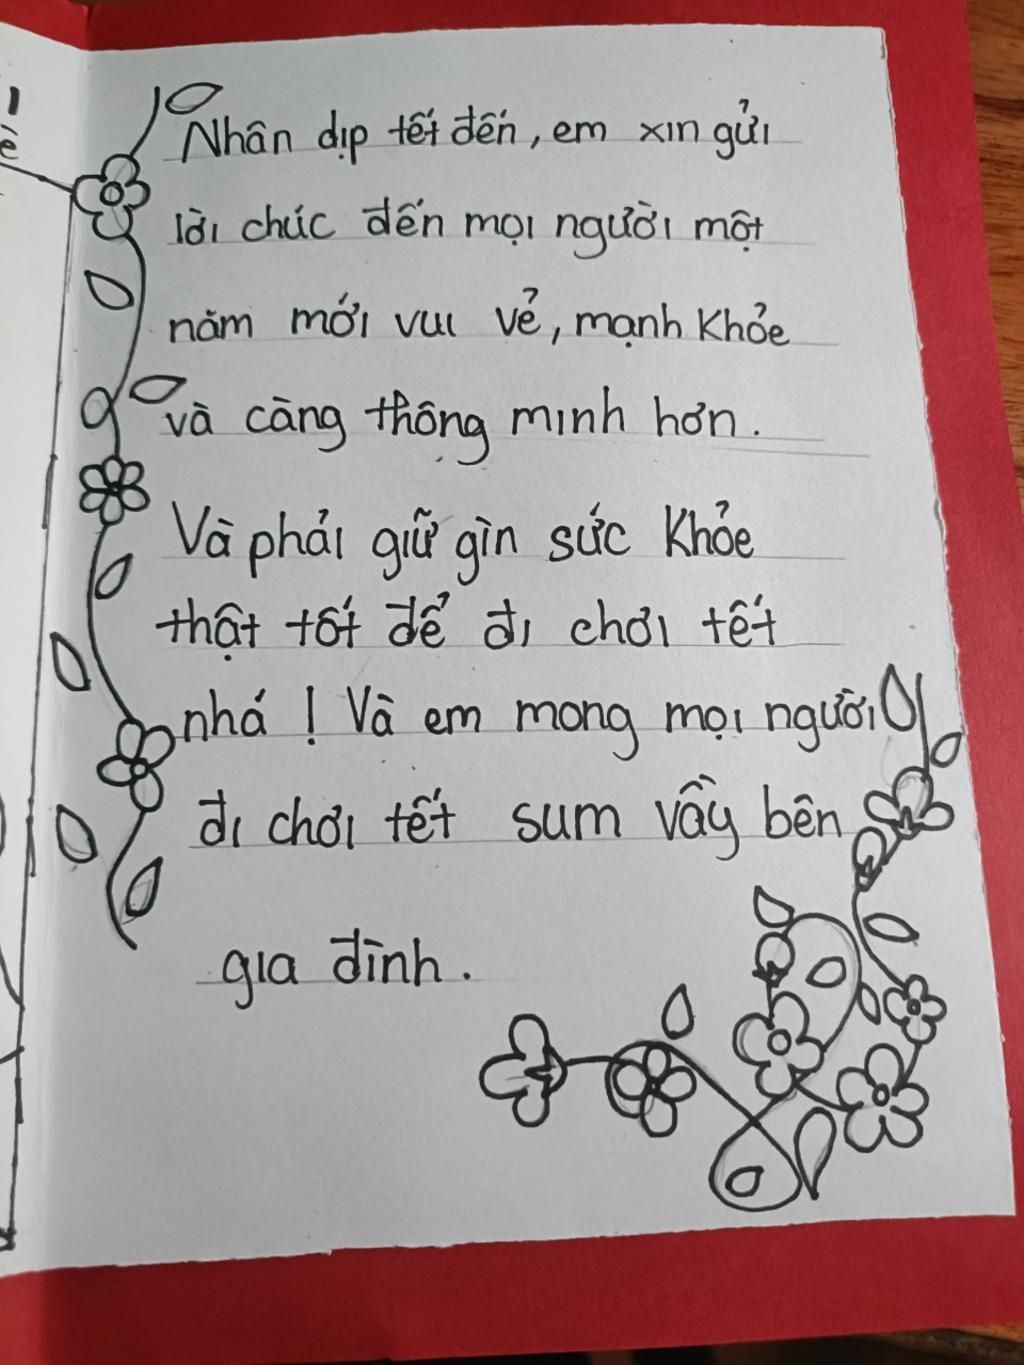 Nhân dịp tết đến, em xin gửi
lời chúc đến mọi người một
năm mới vui vẻ, mạnh khỏe
và càng thông minh hơn.
Và phải giữ gìn sức khỏe
thật tốt để đi chơi tết
nhá ! Và em mong mọi người
đi chơi tết sum vầy bên
gia đình.